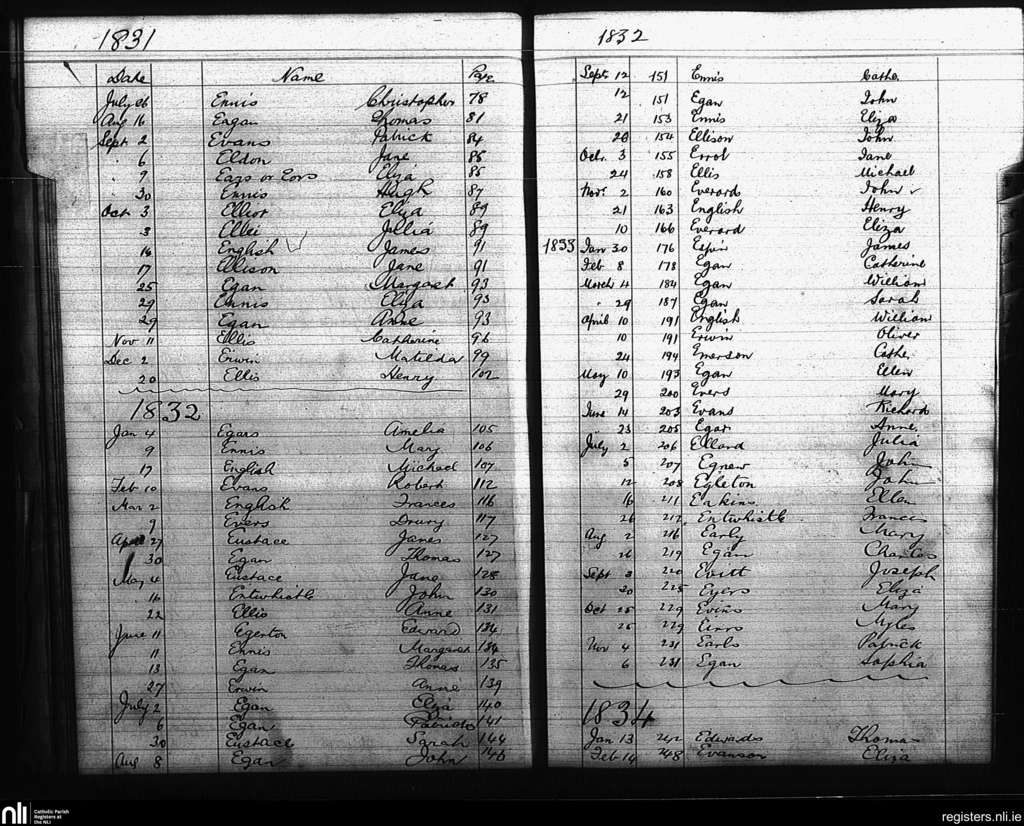 1831
Date Name Page
July 26 Ennis Christopher 78
Aug 16 Eagan Thomas 81
Sept 2 Evans Patrick 84
" 6 Eldon Jane 85
" 9 Ears or Eors Eliza 85
30 Ennis Hugh 87
Oct 3 Elliot Eliza 89
3 Ellei Jullia 89
16 English James 91
17 Ellison Jane 91
25 Egan Margaret 93
29 Ennis Eliza 93
29 Egan Anne 93
Nov 11 Ellis Catherine 96
Dec 2 Erwin Matilda 99
20 Ellis Henry 102
1832
Jan 4 Egars Amelia 105
9 Ennis Mary 106
17 English Michael 107
Feb 10 Evans Robert 112
Mar 2 English Frances 116
9 Evers Drury 117
27 Eustace James 127
30 Egan Thomas 127
May 4 Eustace Jane 128
" 16 Entwhistle John 130
22 Ellis Anne 131
June 11 Egerton Edward 134
11 Ennis Margaret 134
13 Egan Thomas 135
27 Erwin Anne 139
July 2 Egan Eliza 140
6 Egan 141
30 Eustace Sarah 144
Aug 8 Egan John 146
1832
Sept 12 151 Ennis Cathe
12 151 Egan John
21 153 Ennis Eliza
26 154 Ellison John
Octr 3 155 Errol Jane
24 158 Ellis Michael
Novr 2 160 Everard John
21 163 English Henry
10 166 Everard Eliza
1833 Jan 30 176 James
Feb 8 178 Egan Catherine
March 4 184 Egan William
" 29 187 Egan Sarah
April 10 191 English William
10 191 Erwin Oliver
24 194 Emerson Cathe
May 10 193 Egan Ellen
29 200 Evers Mary
June 14 203 Evans Richard
23 205 Egar Anne
July 2 206 Ellard Julia
5 207 Egnew John
12 208 Egleton John
16 211 Eakins Ellen
26 217 Entwhistle Francis
Aug 2 216 Early Mary
26 219 Egan Charles
Sept 3 220 Evitt Joseph
20 225 Eyers Eliza
Oct 25 229 Evins Mary
25 229 Myles
Nov 4 231 Earls Patrick
6 231 Egan Sophia
1834
Jan 13 242 Edwards Thomas
Feb 14 248 Evanson Eliza
nli Catholic Parish Registers at the NLI
registers.nli.ie